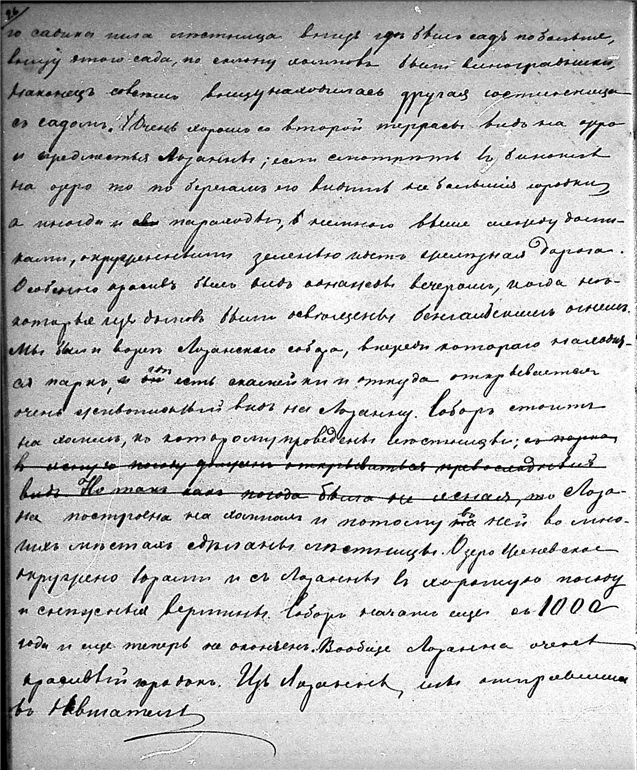 26
го садика шла лѣстница внизъ гдѣ былъ садъ побольше,
внизу этого сада, по склону холмовъ были виноградники,
наконецъ совсѣмъ внизу находилась другая гостинница
съ садомъ. Очень хорошъ со второй террасы видъ на озеро
и предмѣстья Лозанны; если смотрѣть въ бинокль
на озеро то по берегамъ его видны небольшія городки,
а иногда и пароходы, немного выше между доми-
ками, окруженными зеленью идетъ желѣзная дорога.
Особенно красивъ былъ видъ однажды вечеромъ, когда нѣ-
которые изъ домовъ были освѣщены бенгальскимъ огнемъ.
Мы были возлѣ Лозанскаго собора, впереди котораго находит-
ся паркъ, гдѣ есть скамейки и откуда открывается
очень живописный видъ на Лозанну. Соборъ стоитъ
на холмѣ, къ которому проведены лѣстницы; съ парка
въ ясную погоду долженъ открываться превосходный
видъ. Но такъ какъ погода была не ясная, то Лоза-
на построена на холмахъ и потому въ ней во мно-
гихъ мѣстахъ сдѣланы лѣстницы. Озеро Женевское
окружено горами и съ Лозанны въ хорошую погоду
и снѣжныя вершины. Соборъ начатъ еще съ 1000
года и еще теперь не оконченъ. Вообще Лозанна очень
красивый городокъ. Изъ Лозанны мы отправились
въ Невшатель